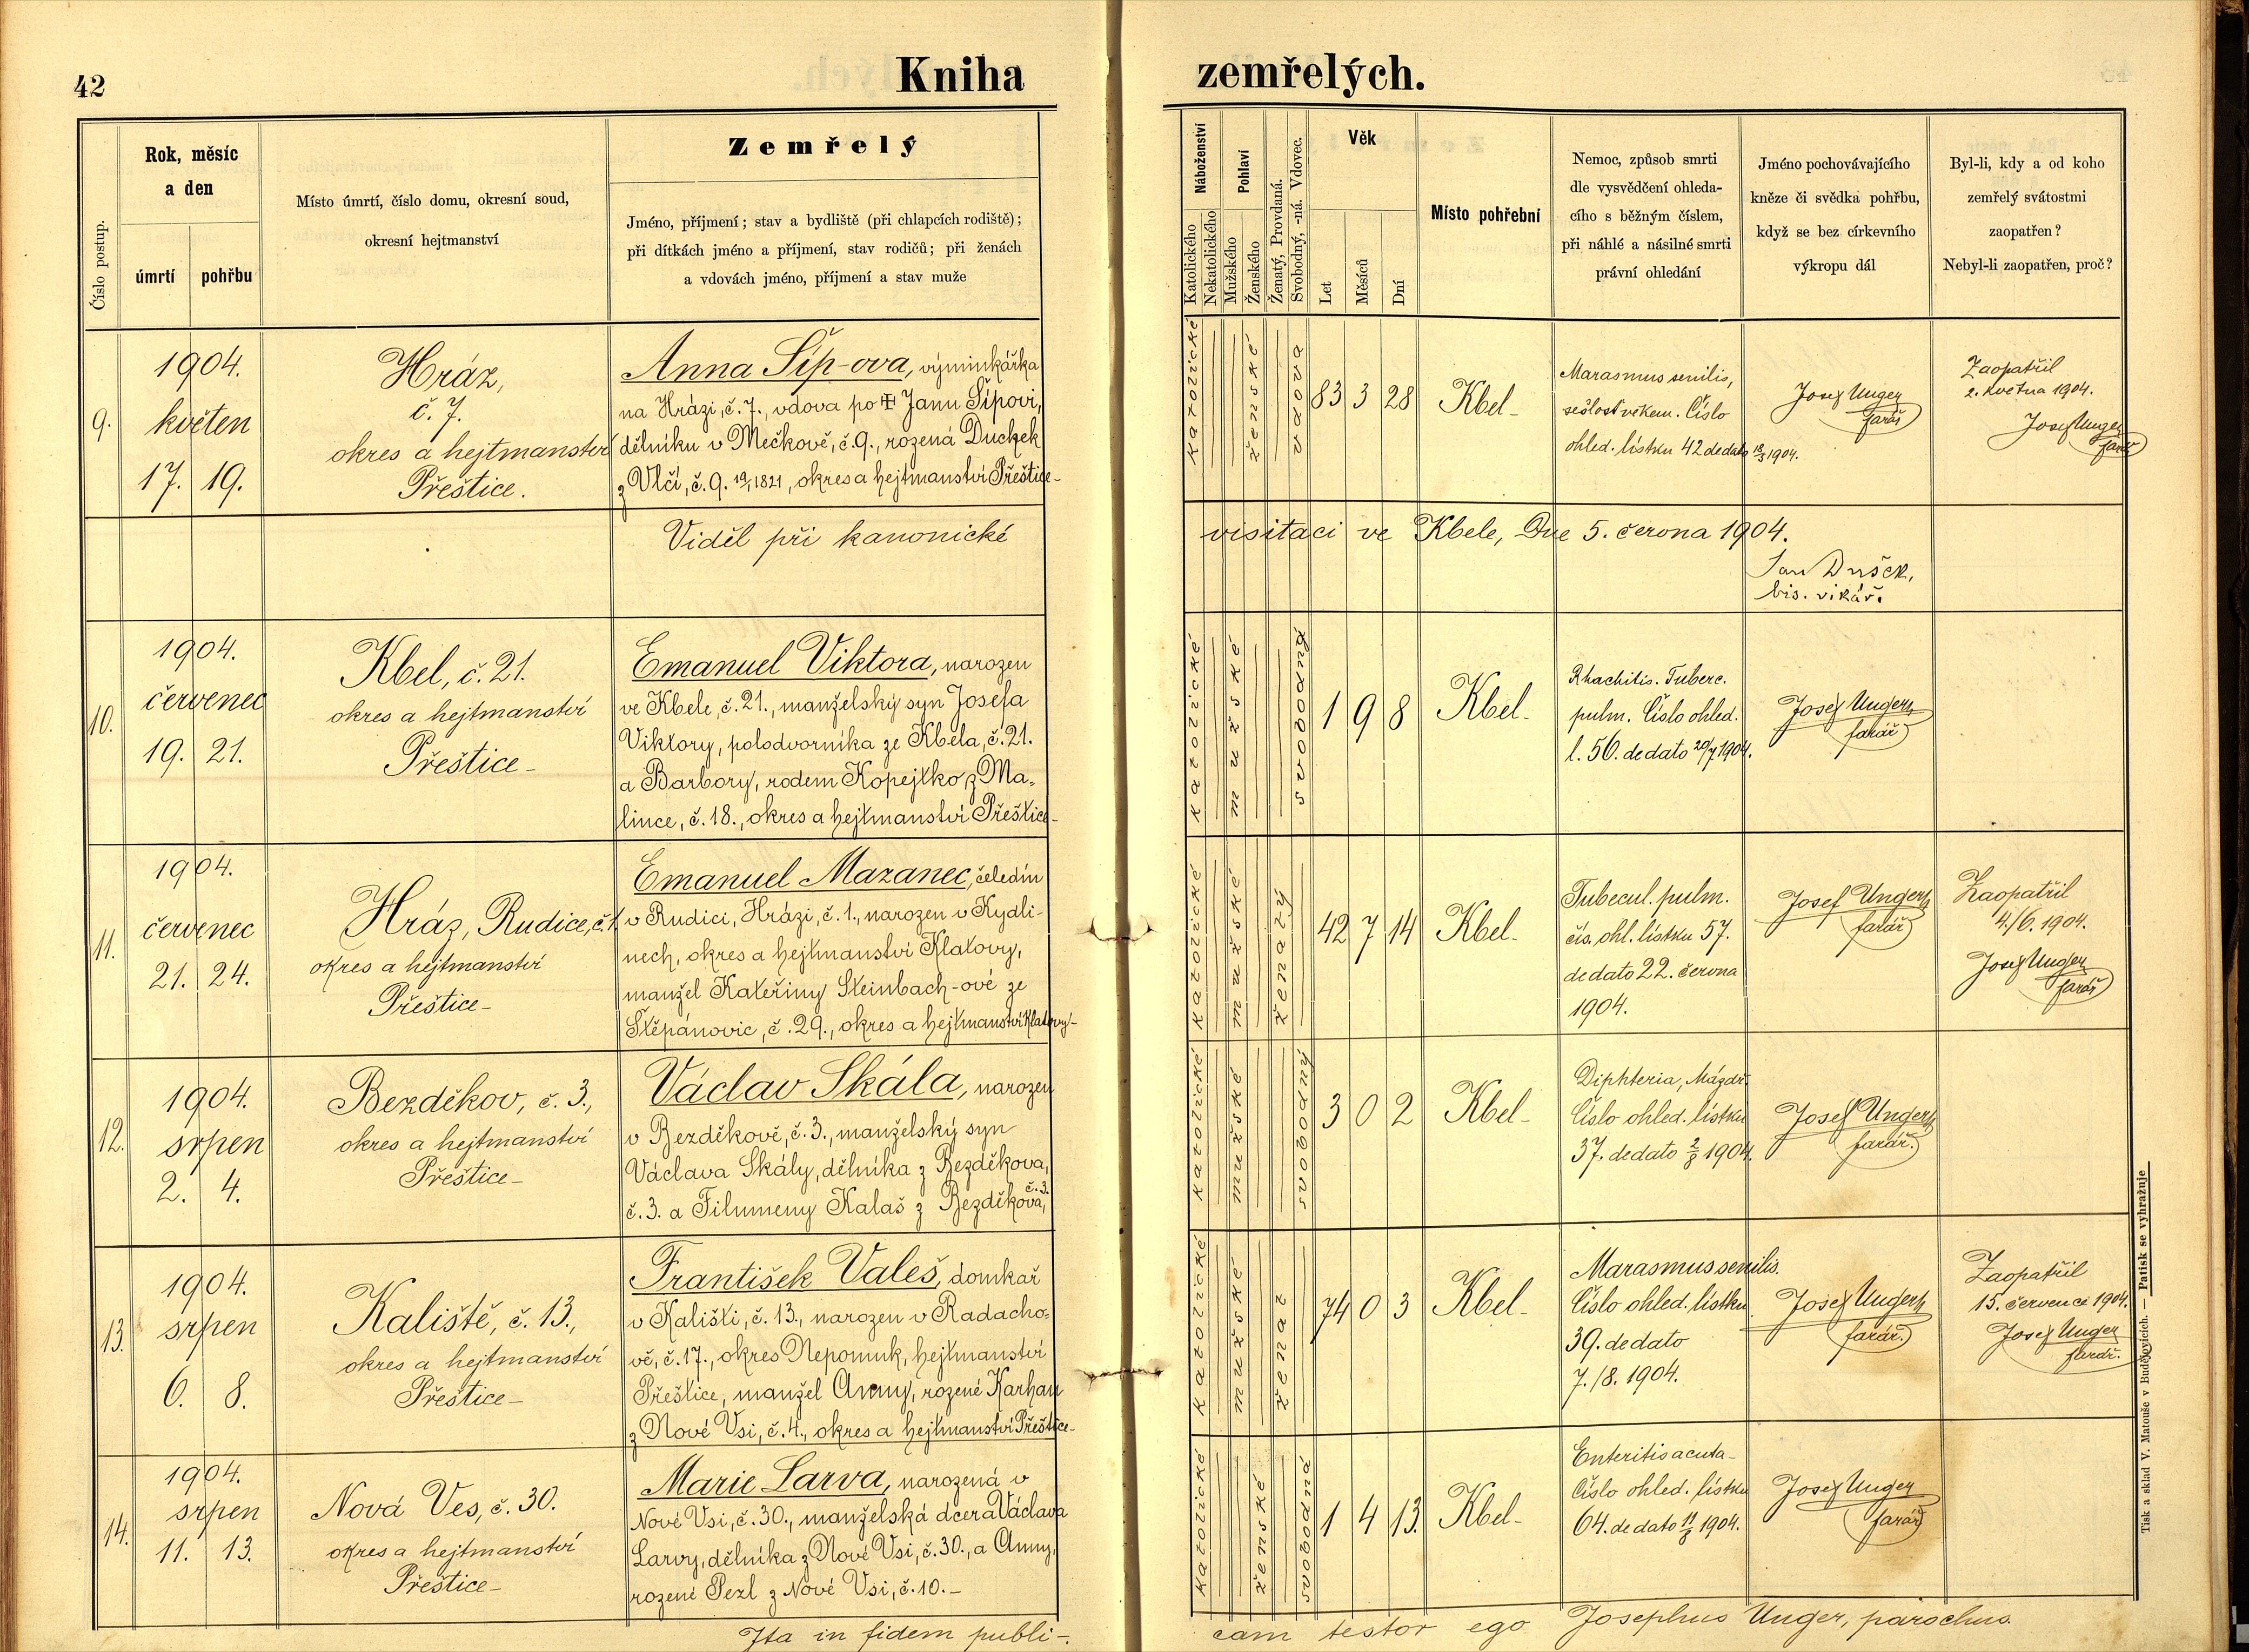 42
Kniha zemřelých.
Číslo postup.
Rok, měsíc
a den
úmrtí
pohřbu
Místo úmrtí, číslo domu, okresní soud,
okresní hejtmanství
Zemřelý
Jméno, příjmení; stav a bydliště (při chlapcích rodiště);
při dítkách jméno a příjmení, stav rodičů; při ženách
a vdovách jméno, příjmení a stav muže
Náboženství
Katolického
Nekatolického
Pohlaví
Mužského
Ženského
Ženatý, Provdaná.
Svobodný, -ná. Vdovec.
Věk
Let
Měsíců
Dní
Místo pohřební
Nemoc, způsob smrti
dle vysvědčení ohleda-
cího s běžným číslem,
při náhlé a násilné smrti
právní ohledání
Jméno pochovávajícího
kněze či svědka pohřbu,
když se bez církevního
výkropu dál
Byl-li, kdy a od koho
zemřelý svátostmi
zaopatřen?
Nebyl-li zaopatřen, proč?
9.
1904.
květen
17. 19.
Hráz,
č. 7.
okres a hejtmanství
Přeštice.
Anna Šíp-ova, výminkářka
na Hrázi, č. 7., vdova po Janu Šípovi,
dělníku v Mečkově, č. 9., rozená Duchek
z Vlčí, č. 9. 19/1 1821, okres a hejtmanství Přeštice-
katolické
ženské
vdova
83 3 28
Kbel-
Marasmus senilis,
sešlost věkem. Číslo
ohled. lístku 42 de dato 18/5 1904.
Josef Unger
farář
Zaopatřil
2. května 1904.
Josef Unger
farář
Viděl při kanonické visitaci ve Kbele, Dne 5. června 1904.
Jan Dušek,
bis. vikář.
10.
1904.
červenec
19. 21.
Kbel, č. 21.
okres a hejtmanství
Přeštice-
Emanuel Viktora, narozen
ve Kbele, č. 21., manželský syn Josefa
Viktory, polodvorníka ze Kbela, č. 21.
a Barbory, rodem Kopejtko z Ma-
lince, č. 18., okres a hejtmanství Přeštice-
katolické
mužské
svobodný
1 9 8
Kbel-
Rhachitis. Tuberc.
pulm. Číslo ohled.
l. 56. de dato 20/7 1904.
Josef Unger
farář
11.
1904.
červenec
21. 24.
Hráz, Rudice, č. 1.
okres a hejtmanství
Přeštice-
Emanuel Mazanec, čeledín
v Rudici, Hrázi, č. 1., narozen v Kydli-
nech, okres a hejtmanství Klatovy,
manžel Kateřiny Steinbach-ové ze
Štěpánovic, č. 29., okres a hejtmanství Klatovy-
katolické
mužské
ženatý
42 7 14
Kbel-
Tubecul. pulm.
čís. ohl. lístku 57.
de dato 22. června
1904.
Josef Unger
farář
Zaopatřil
4./6. 1904.
Josef Unger
farář
12.
1904.
srpen
2. 4.
Bezděkov, č. 3.,
okres a hejtmanství
Přeštice-
Václav Skála, narozen
v Bezděkově, č. 3., manželský syn
Václava Skály, dělníka z Bezděkova,
č. 3. a Filumeny Kalaš z Bezděkova, č. 3.
katolické
mužské
svobodný
3 0 2
Kbel-
Diphteria, Mázdř.
Číslo ohled. lístku
37. de dato 2/8 1904.
Josef Unger
farář.
13.
1904.
srpen
6. 8.
Kaliště, č. 13.,
okres a hejtmanství
Přeštice-
František Valeš, domkař
v Kališti, č. 13., narozen v Radacho-
vě, č. 17., okres Nepomuk, hejtmanství
Přeštice, manžel Anny, rozené Karhan
z Nové Vsi, č. 4., okres a hejtmanství Přeštice-
katolické
mužské
ženat
74 0 3
Kbel-
Marasmus senilis.
Číslo ohled. lístku
39. de dato
7./8. 1904.
Josef Unger
farář.
Zaopatřil
15. července 1904.
Josef Unger
farář.
14.
1904.
srpen
11. 13.
Nová Ves, č. 30.
okres a hejtmanství
Přeštice-
Marie Larva, narozená v
Nové Vsi, č. 30., manželská dcera Václava
Larvy, dělníka z Nové Vsi, č. 30., a Anny,
rozené Pezl z Nové Vsi, č. 10.-
katolické
ženské
svobodná
1 4 13.
Kbel-
Enteritis acuta-
Číslo ohled. lístku
64. de dato 11/8 1904.
Josef Unger
farář
Ita in fidem publi-cam testor ego Josephus Unger, parochus.
Tisk a sklad V. Matouše v Budějovicích. — Patisk se vyhražuje